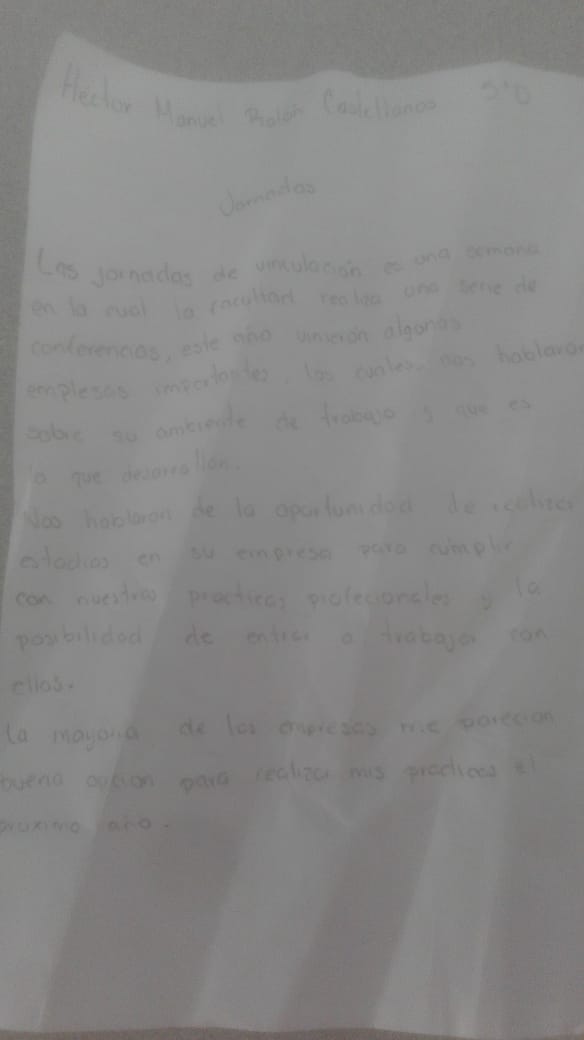 Héctor Manuel Rolón Castellanos 5°D
Jornadas
Las jornadas de vinculación es una semana
en la cual la facultad realiza una serie de
conferencias, este año vinieron algunas
empresas importantes, los cuales nos hablaron
sobre su ambiente de trabajo y que es
lo que desarrollan.
Nos hablaron de la oportunidad de realizar
estadias en su empresa para cumplir
con nuestras practicas profecionales y la
posibilidad de entrar a trabajar con
ellos.
La mayoria de las empresas me parecian
buena opcion para realizar mis practicas el
proximo año.